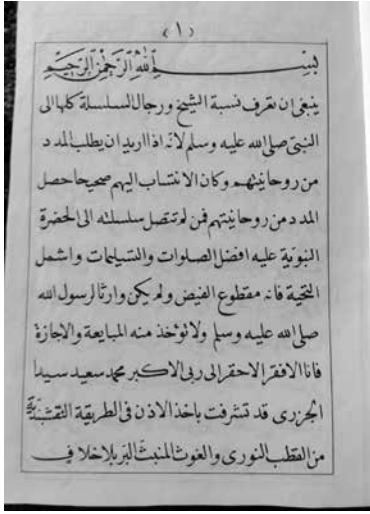 (١)
بسم الله الرحمن الرحيم
ينبغى ان نعرف نسبة الشيخ ورجال السلسلة كلها الى
النبى صلى الله عليه وسلم لانه اذا اريد ان يطلب المدد
من روحانيتهم وكان الانتساب اليهم صحيحا حصل
المدد من روحانيتهم فمن لم تتصل سلسلته الى الحضرة
النبوية عليه افضل الصلوات والتسليمات واشمل
التحية فانه مقطوع الفيض ولم يكن وارثا لرسول الله
صلى الله عليه وسلم ولا تؤخذ منه المبايعة والاجازة
فانا الافقر الاحقر الى ربى الاكبر محمد سعيد سيدا
الجزرى قد تشرفت باخذ الاذن فى الطريقة النقشبندية
من القطب النورى والغوث المنبث البر بلا خلاف